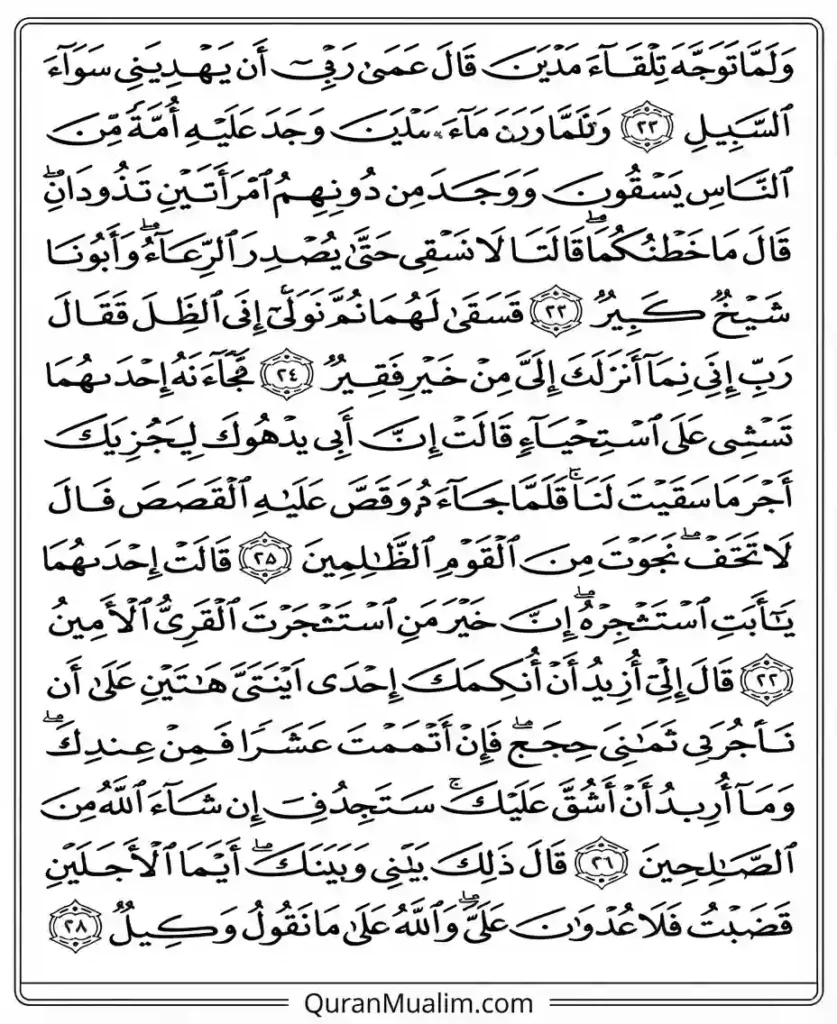 وَلَمَّا تَوَجَّهَ تِلْقَآءَ مَدْيَنَ قَالَ عَمَىٰ رَبِّىٓ أَن يَهْدِيَنِى سَوَآءَ
ٱلسَّبِيلِ ٢٣ وَلَمَّا وَرَدَ مَآءَ مَدْيَنَ وَجَدَ عَلَيْهِ أُمَّةً مِّنَ
ٱلنَّاسِ يَسْقُونَ وَوَجَدَ مِن دُونِهِمُ ٱمْرَأَتَيْنِ تَذُودَانِ ۖ
قَالَ مَا خَطْبُكُمَا ۖ قَالَتَا لَا نَسْقِى حَتَّىٰ يُصْدِرَ ٱلرِّعَآءُ ۖ وَأَبُونَا
شَيْخٌ كَبِيرٌ ٢٣ فَسَقَىٰ لَهُمَا ثُمَّ تَوَلَّىٰٓ إِلَى ٱلظِّلِّ فَقَالَ
رَبِّ إِنِّى لِمَآ أَنزَلْتَ إِلَىَّ مِنْ خَيْرٍ فَقِيرٌ ٢٤ فَجَآءَتْهُ إِحْدَىٰهُمَا
تَمْشِى عَلَى ٱسْتِحْيَآءٍ قَالَتْ إِنَّ أَبِى يَدْعُوكَ لِيَجْزِيَكَ
أَجْرَ مَا سَقَيْتَ لَنَا ۚ فَلَمَّا جَآءَهُ وَقَصَّ عَلَيْهِ ٱلْقَصَصَ قَالَ
لَا تَخَفْ ۖ نَجَوْتَ مِنَ ٱلْقَوْمِ ٱلظَّٰلِمِينَ ٢٥ قَالَتْ إِحْدَىٰهُمَا
يَٰٓأَبَتِ ٱسْتَـْٔجِرْهُ ۖ إِنَّ خَيْرَ مَنِ ٱسْتَـْٔجَرْتَ ٱلْقَرِىُّ ٱلْأَمِينُ
٢٢ قَالَ إِنِّىٓ أُرِيدُ أَنْ أُنكِحَكَ إِحْدَى ٱبْنَتَىَّ هَٰتَيْنِ عَلَىٰٓ أَن
تَأْجُرَنِى ثَمَٰنِىَ حِجَجٍ ۖ فَإِنْ أَتْمَمْتَ عَشْرًا فَمِنْ عِندِكَ ۖ
وَمَآ أُرِيدُ أَنْ أَشُقَّ عَلَيْكَ ۚ سَتَجِدُنِى إِن شَآءَ ٱللَّهُ مِنَ
ٱلصَّٰلِحِينَ ٢٦ قَالَ ذَٰلِكَ بَيْنِى وَبَيْنَكَ ۖ أَيَّمَا ٱلْأَجَلَيْنِ
قَضَيْتُ فَلَا عُدْوَٰنَ عَلَىَّ ۖ وَٱللَّهُ عَلَىٰ مَا نَقُولُ وَكِيلٌ ٢٨
QuranMualim.com